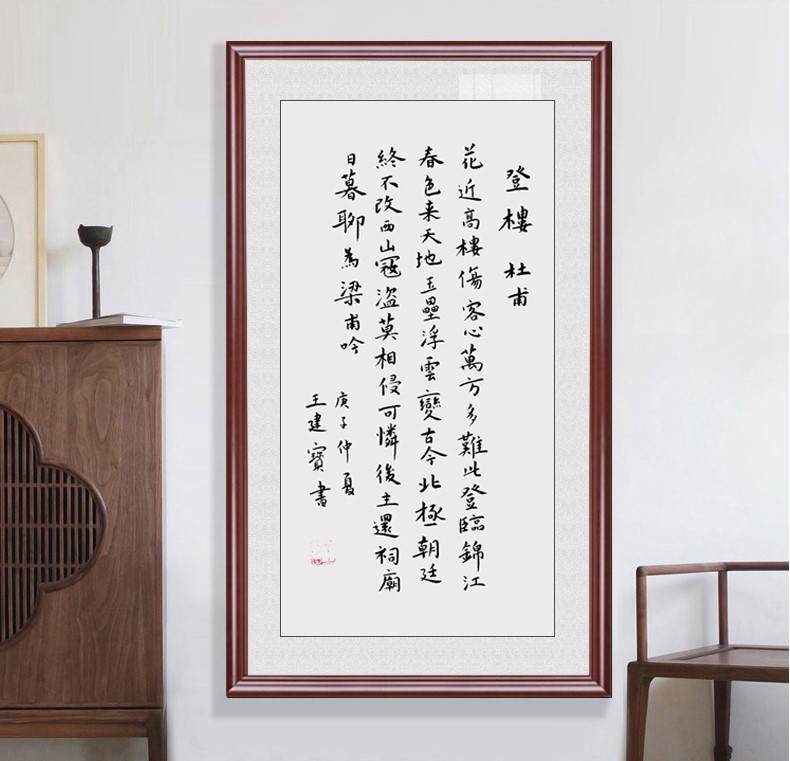 登樓 杜甫
花近高樓傷客心萬方多難此登臨錦江
春色来天地玉壘浮雲變古今北極朝廷
終不改西山寇盜莫相侵可憐後主還祠廟
日暮聊為梁甫吟
庚子仲夏
王建寶書